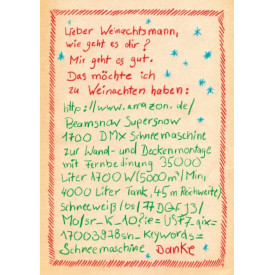 Lieber Weinachtsmann,
wie geht es dir?
Mir geht es gut.
Das möchte ich
zu Weinachten haben:
http://www.amazon.de/
Beamsnow Supersnow
1700 DMX Schneemaschine
zur Wand- und Deckenmontage
mit Fernbedinung 35000
Liter 1700 W(5000m³/Min,
4000 Liter Tank, 45m Reichweite)
schneeweiß/bs/77DQF13/
Mo/sr_K_10?ie=US77_qixe=
17003978sn_Keywords=
Schneemaschine Danke